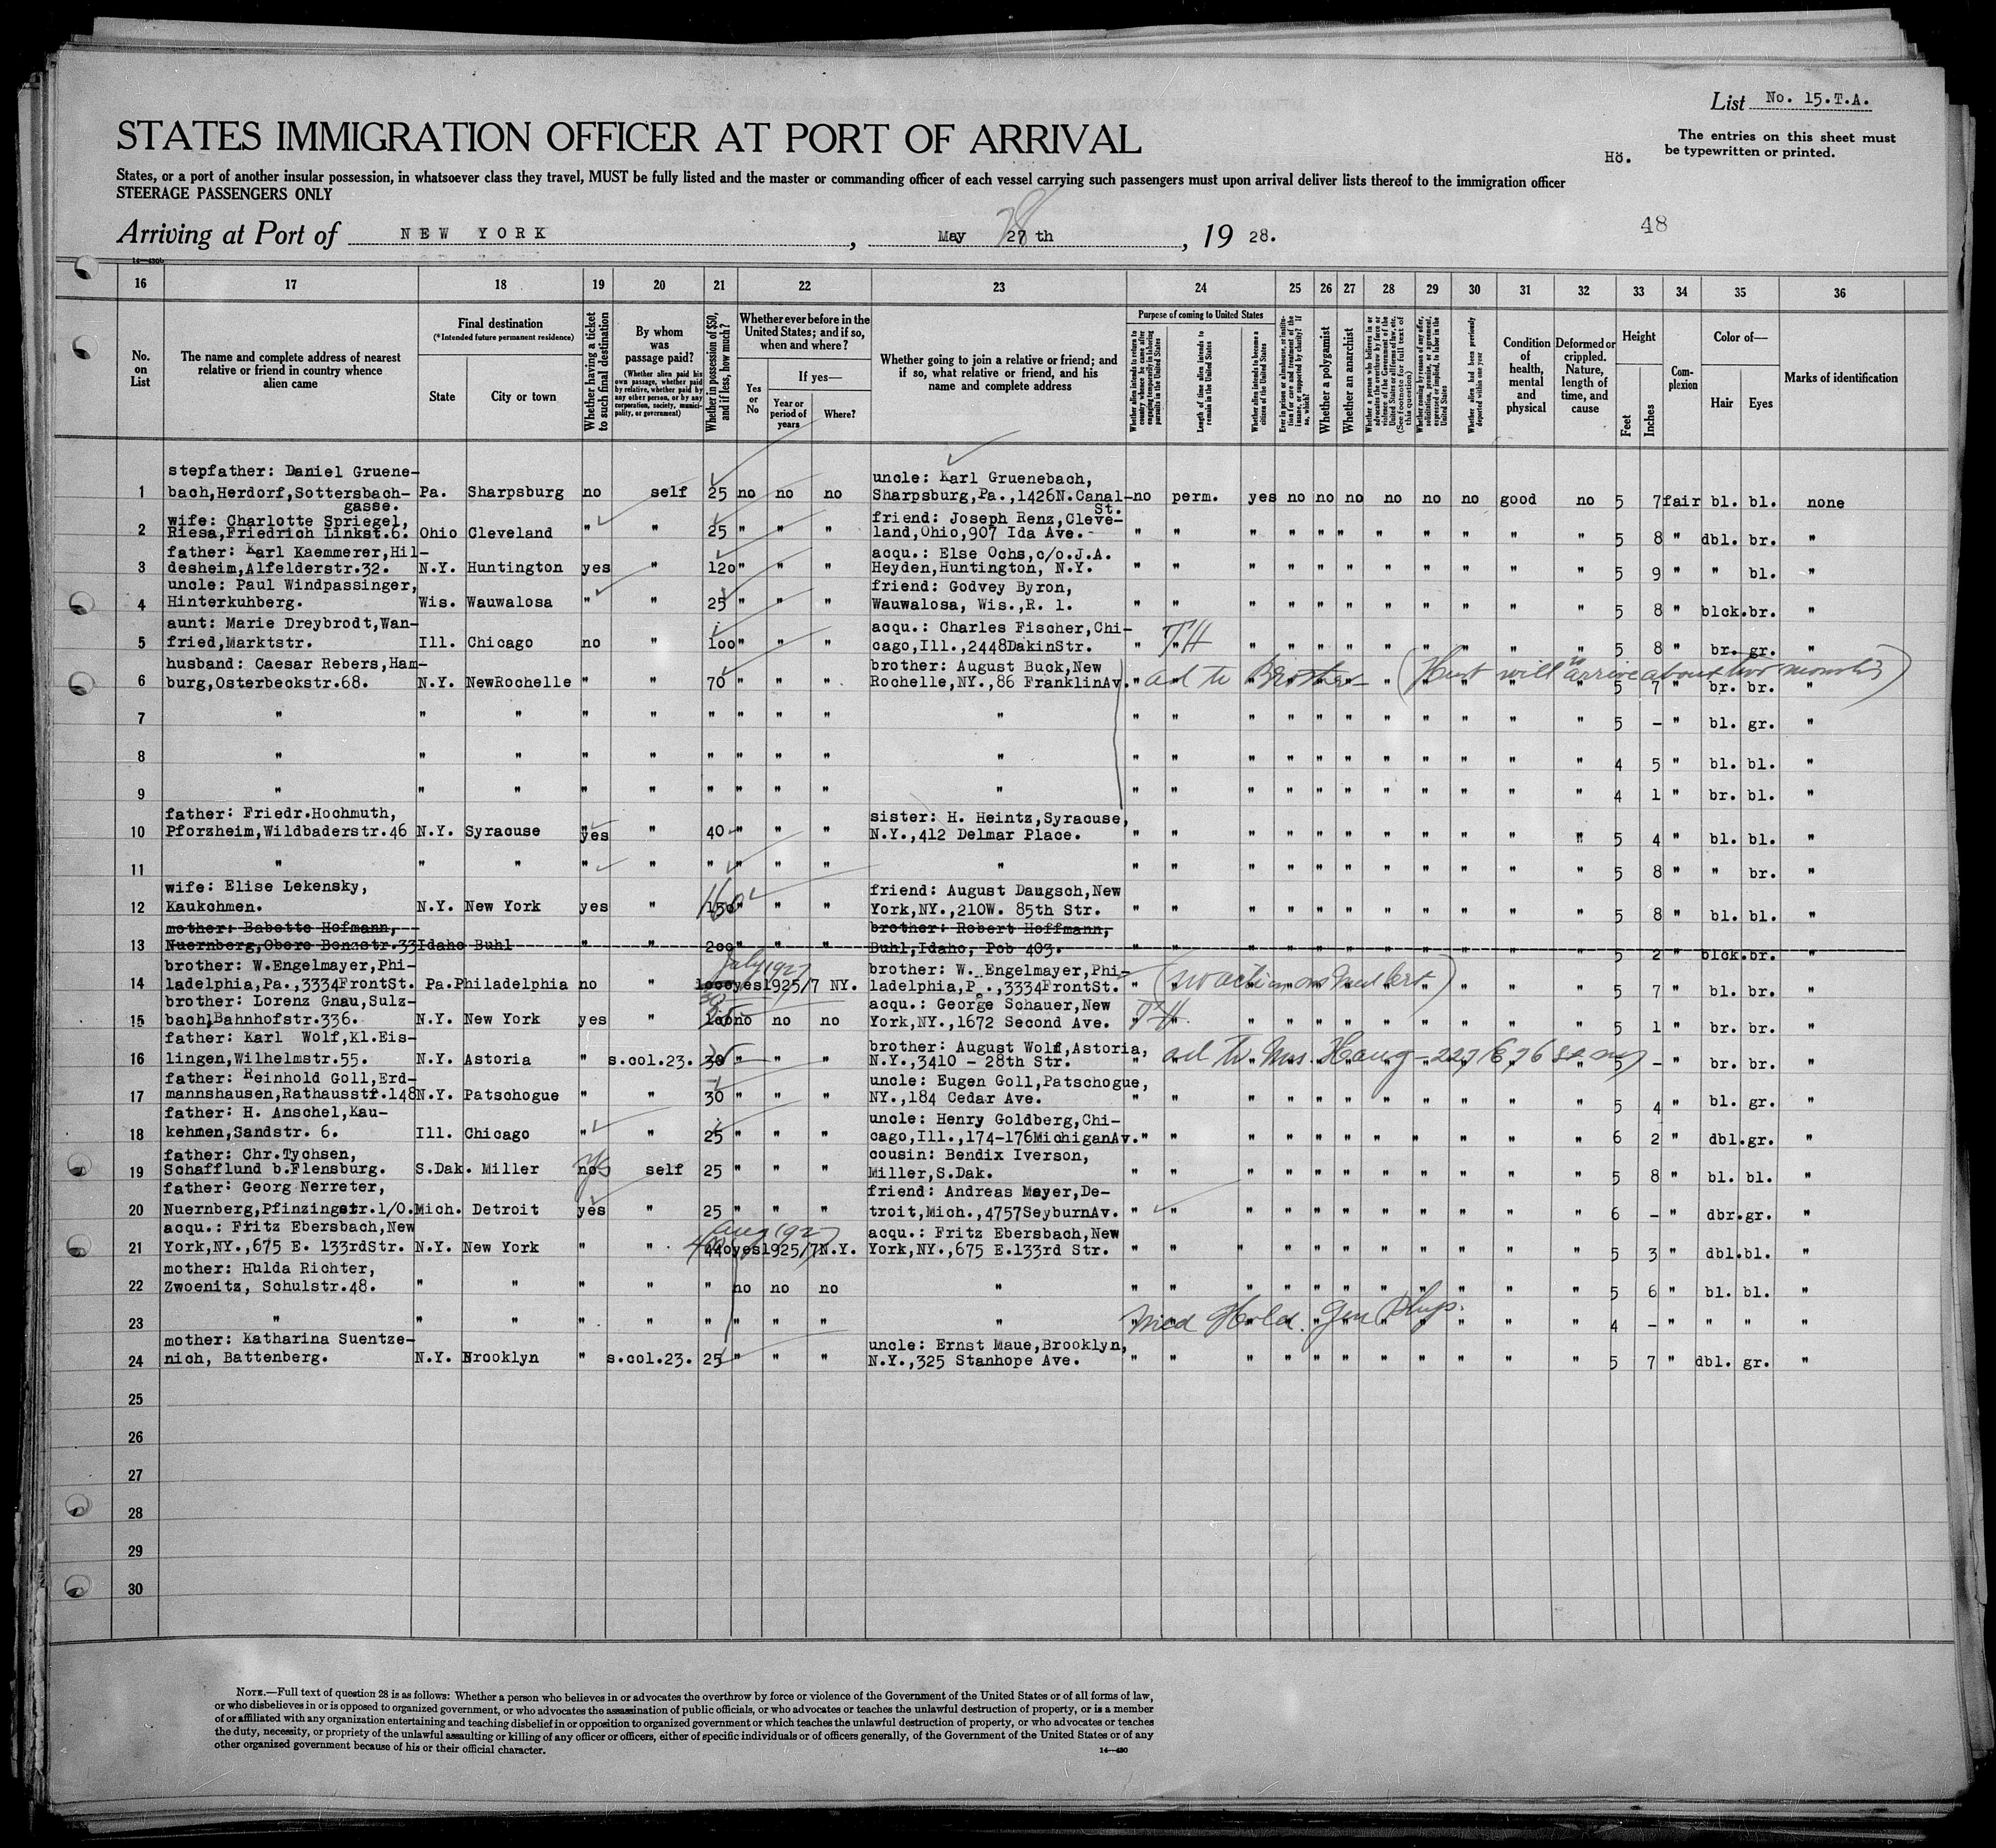 List No. 15.T.A.
STATES IMMIGRATION OFFICER AT PORT OF ARRIVAL
The entries on this sheet must
be typewritten or printed.
Hö.
States, or a port of another insular possession, in whatsoever class they travel, MUST be fully listed and the master or commanding officer of each vessel carrying such passengers must upon arrival deliver lists thereof to the immigration officer
STEERAGE PASSENGERS ONLY
Arriving at Port of NEW YORK, May 27th 28, 1928.
48
14—430b
16 17 18 19 20 21 22 23 24 25 26 27 28 29 30 31 32 33 34 35 36
No. on List
The name and complete address of nearest relative or friend in country whence alien came
Final destination
(*Intended future permanent residence)
State
City or town
Whether having a ticket to such final destination
By whom was passage paid?
(Whether alien paid his own passage, whether paid by relative, whether paid by any other person, or by any corporation, society, municipality, or government)
Whether in possession of $50, and if less, how much?
Whether ever before in the United States; and if so, when and where?
Yes or No
If yes—
Year or period of years
Where?
Whether going to join a relative or friend; and if so, what relative or friend, and his name and complete address
Purpose of coming to United States
Whether alien intends to return to country whence he came after engaging temporarily in laboring pursuits in the United States
Length of time alien intends to remain in the United States
Whether alien intends to become a citizen of the United States
Ever in prison or almshouse, or institution for care and treatment of the insane, or supported by charity? If so, which?
Whether a polygamist
Whether an anarchist
Whether a person who believes in or advocates the overthrow by force or violence of the Government of the United States or all forms of law, etc. (See footnote for full text of this question)
Whether coming by reason of any offer, solicitation, promise, or agreement, expressed or implied, to labor in the United States
Whether alien had been previously deported within one year
Condition of health, mental and physical
Deformed or crippled. Nature, length of time, and cause
Height
Feet
Inches
Complexion
Color of—
Hair
Eyes
Marks of identification
stepfather: Daniel Gruene- uncle: Karl Gruenebach,
1 bach,Herdorf,Sottersbach- Pa. Sharpsburg no self 25 no no no Sharpsburg,Pa.,1426N.Canal- no perm. yes no no no no no no good no 5 7 fair bl. bl. none
gasse. St.
wife: Charlotte Spriegel, friend: Joseph Renz,Cleve-
2 Riesa,Friedrich Linkst.6. Ohio Cleveland " " 25 " " " land,Ohio,907 Ida Ave. " " " " " " " " " " " 5 8 " dbl. br. "
father: Karl Kaemmerer,Hil- acqu.: Else Ochs,c/o.J.A.
3 desheim,Alfelderstr.32. N.Y. Huntington yes " 120 " " " Heyden,Huntington, N.Y. " " " " " " " " " " " 5 9 " " bl. "
uncle: Paul Windpassinger, friend: Godvey Byron,
4 Hinterkuhberg. Wis. Wauwalosa " " 25 " " " Wauwalosa, Wis.,R. 1. " " " " " " " " " " " 5 8 " blck. br. "
aunt: Marie Dreybrodt,Wan- acqu.: Charles Fischer,Chi-
5 fried,Marktstr. Ill. Chicago no " 100 " " " cago,Ill.,2448DakinStr. " " " " " " " " " " " 5 8 " br. gr. "
TH
husband: Caesar Rebers,Ham- brother: August Buck,New
6 burg,Osterbeckstr.68. N.Y. NewRochelle " " 70 " " " Rochelle,NY.,86 FranklinAv. " " " " " " " " " " " 5 7 " br. br. "
ad to Brother (Hust will arrive in about two months)
7 " " " " " " " " " " " " " " " " " " " " " 5 - " bl. gr. "
8 " " " " " " " " " " " " " " " " " " " " " 4 5 " bl. bl. "
9 " " " " " " " " " " " " " " " " " " " " " 4 1 " br. bl. "
father: Friedr.Hochmuth, sister: H. Heintz,Syracuse,
10 Pforzheim,Wildbaderstr.46 N.Y. Syracuse yes " 40 " " " N.Y.,412 Delmar Place. " " " " " " " " " " " 5 4 " bl. bl. "
11 " " " " " " " " " " " " " " " " " " " " " 5 8 " " br. "
wife: Elise Lekensky, friend: August Daugsch,New
12 Kaukohmen. N.Y. New York yes " 150 160 " " " York,NY.,210W. 85th Str. " " " " " " " " " " " 5 8 " bl. bl. "
mother: Babette Hofmann, brother: Robert Hoffmann,
13 Nuernberg,Obere Benzstr.33 Idaho Buhl " " 200 " " " Buhl,Idaho, Pob 403. " " " " " " " " " " " 5 2 " blck. br. "
July 1927
brother: W.Engelmayer,Phi- brother: W. Engelmayer,Phi-
14 ladelphia,Pa.,3334FrontSt. Pa. Philadelphia no " 1000 yes 1925/7 NY. ladelphia,Pa.,3334FrontSt. " " " " " " " " " " " 5 7 " bl. br. "
brother: Lorenz Gnau,Sulz- acqu.: George Schauer,New
15 bach,Bahnhofstr.336. N.Y. New York yes " 100 no no no York,NY.,1672 Second Ave. " " " " " " " " " " " 5 1 " br. br. "
TH.
father: Karl Wolf,Kl.Eis- brother: August Wolf,Astoria,
16 lingen,Wilhelmstr.55. N.Y. Astoria " s.col.23. 30 " " " N.Y.,3410 - 28th Str. " " " " " " " " " " " 5 - " br. br. "
ad to Mrs. Haug - 227 E 76 St NY
father: Reinhold Goll,Erd- uncle: Eugen Goll,Patschogue,
17 mannshausen,Rathausstr.148 N.Y. Patschogue " " 30 " " " NY.,184 Cedar Ave. " " " " " " " " " " " 5 4 " bl. gr. "
father: H. Anschel,Kau- uncle: Henry Goldberg,Chi-
18 kehmen,Sandstr. 6. Ill. Chicago " " 25 " " " cago,Ill.,174-176MichiganAv. " " " " " " " " " " " 6 2 " dbl. gr. "
father: Chr.Tychsen, cousin: Bendix Iverson,
19 Schafflund b.Flensburg. S.Dak. Miller no yes self 25 " " " Miller,S.Dak. " " " " " " " " " " " 5 8 " bl. bl. "
father: Georg Nerreter, friend: Andreas Mayer,De-
20 Nuernberg,Pfinzingstr.1/0. Mich. Detroit yes " 25 " " " troit,Mich.,4757SeyburnAv. " " " " " " " " " " " 6 - " dbr. gr. "
Aug 1927
acqu.: Fritz Ebersbach,New acqu.: Fritz Ebersbach,New
21 York,NY.,675 E. 133rdStr. N.Y. New York " " 440 yes 1925/7 N.Y. York,NY.,675 E.133rd Str. " " " " " " " " " " " 5 3 " dbl. bl. "
mother: Hulda Richter,
22 Zwoenitz, Schulstr.48. " " " " " no no no " " " " " " " " " " " " 5 6 " bl. bl. "
23 " " " " " " " " " " " " " " " " " " " " " 4 - " " " "
Med Hold.
mother: Katharina Suentze- uncle: Ernst Maue,Brooklyn,
24 nich, Battenberg. N.Y. Brooklyn " s.col.23. 25 " " " N.Y.,325 Stanhope Ave. " " " " " " " " " " " 5 7 " dbl. gr. "
25
26
27
28
29
30
NOTE.—Full text of question 28 is as follows: Whether a person who believes in or advocates the overthrow by force or violence of the Government of the United States or of all forms of law,
or who disbelieves in or is opposed to organized government, or who advocates the assassination of public officials, or who advocates or teaches the unlawful destruction of property, or is a member
of or affiliated with any organization entertaining and teaching disbelief in or opposition to organized government or which teaches the unlawful destruction of property, or who advocates or teaches
the duty, necessity, or propriety of the unlawful assaulting or killing of any officer or officers, either of specific individuals or of officers generally, of the Government of the United States or of any
other organized government because of his or their official character.
14—430